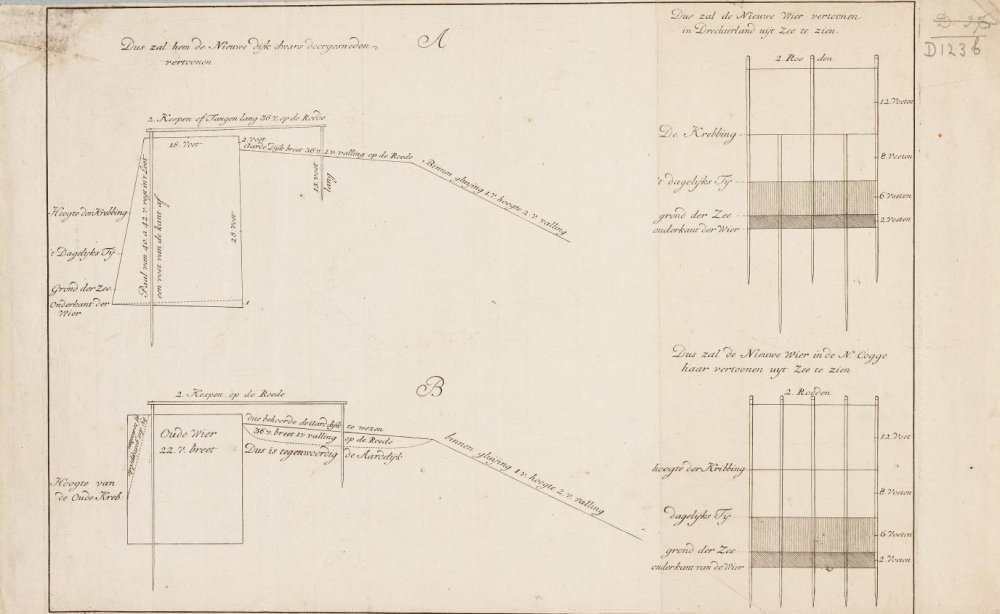 Dus zal hem de Nieuwe dijk dwars doorgesneden
vertoonen
A
2. Kespen of Tangen lang 36. v. op de Roede
18. Voet
2. voet
Aarde Dijk breet 36. v. 1. v. valling op de Roede
Binnen gluijing 1. v. hoogte 2. v. valling
18. voet
lang
Paal van 40. a 42. v. regt in't Loot
een voet van de kant af
28. Voet
Hoogte der Krebbing
't Dagelijks Tij
Grond der Zee
Onderkant der
Wier
1
B
2. Kespen op de Roede
Oude Wier
22. v. breet
dus behoorde de Aardijk te wezen
36. v. breet 1. v. valling op de Roede
Dus is tegenwoordig de Aarddijk
binnen gluijing 1. v. hoogte 2. v. valling
Hoogte van
de Oude Kreb.
Dus zal de Nieuwe Wier vertoonen
in Drechterland uijt Zee te zien.
2. Roeden
12. Voeten
De Krebbing
8. Voeten
't dagelijks Tij
6 Voeten
grond der Zee
2. Voeten
onderkant der Wier
Dus zal de Nieuwe Wier in de N. Cogge
haar vertoonen uyt Zee te zien
2. Roeden
12. Voet
hoogte der Kribbing
8. Voeten
dagelijks Tij
6. Voeten
grond der Zee
2. Voeten
onderkant van de Wier
D123 6